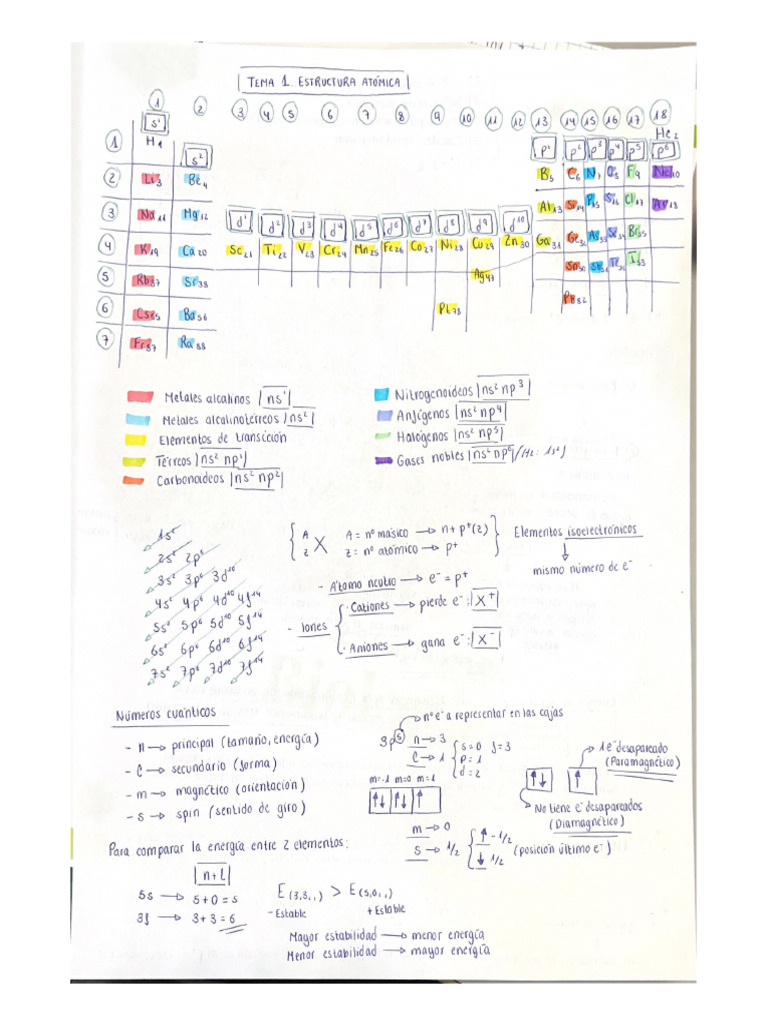 TEMA 1. ESTRUCTURA ATÓMICA
1 2 3 4 5 6 7 8 9 10 11 12 13 14 15 16 17 18
s¹ He₂
1 H₁ s² p¹ p² p³ p⁴ p⁵ p⁶
2 Li₃ Be₄ B₅ C₆ N₇ O₈ F₉ Ne₁₀
3 Na₁₁ Mg₁₂ d¹ d² d³ d⁴ d⁵ d⁶ d⁷ d⁸ d⁹ d¹⁰ Al₁₃ Si₁₄ P₁₅ S₁₆ Cl₁₇ Ar₁₈
4 K₁₉ Ca₂₀ Sc₂₁ Ti₂₂ V₂₃ Cr₂₄ Mn₂₅ Fe₂₆ Co₂₇ Ni₂₈ Cu₂₉ Zn₃₀ Ga₃₁ Ge₃₂ As₃₃ Se₃₄ Br₃₅
5 Rb₃₇ Sr₃₈ Ag₄₇ Sn₅₀ I₅₃
6 Cs₅₅ Ba₅₆ Pt₇₈ Pb₈₂
7 Fr₈₇ Ra₈₈
Metales alcalinos ns¹
Metales alcalinotérreos ns²
Elementos de transición
Térreos ns² np¹
Carbonoideos ns² np²
Nitrogenoideos ns² np³
Anfígenos ns² np⁴
Halógenos ns² np⁵
Gases nobles ns² np⁶ /He: 1s²)
1s²
2s² 2p⁶
3s² 3p⁶ 3d¹⁰
4s² 4p⁶ 4d¹⁰ 4f¹⁴
5s² 5p⁶ 5d¹⁰ 5f¹⁴
6s² 6p⁶ 6d¹⁰ 6f¹⁴
7s² 7p⁶ 7d¹⁰ 7f¹⁴
A
Z X
A = nº másico → n + p⁺(z)
Z = nº atómico → p⁺
Elementos isoelectrónicos
mismo número de e⁻
- Átomo neutro → e⁻ = p⁺
- Iones
· Cationes → pierde e⁻: X⁺
· Aniones → gana e⁻: X⁻
Números cuánticos
- n → principal (tamaño, energía)
- l → secundario (forma)
- m → magnético (orientación)
- s → spin (sentido de giro)
nº e⁻ a representar en las cajas
3p⁵ n → 3
l → 1 s = 0 f = 3
p = 1
d = 2
m=-1 m=0 m=1
↑↓ ↑↓ ↑
m → 0
s → 1/2 ↑ - 1/2
↓ 1/2 (posición último e⁻)
1 e⁻ desapareado
(Paramagnético)
↑↓ ↑
No tiene e⁻ desapareados
(Diamagnético)
Para comparar la energía entre 2 elementos:
n + l
5s → 5 + 0 = 5
3f → 3 + 3 = 6
E (3,3, , ) > E (5,0, , )
- Estable + Estable
Mayor estabilidad → menor energía
Menor estabilidad → mayor energía